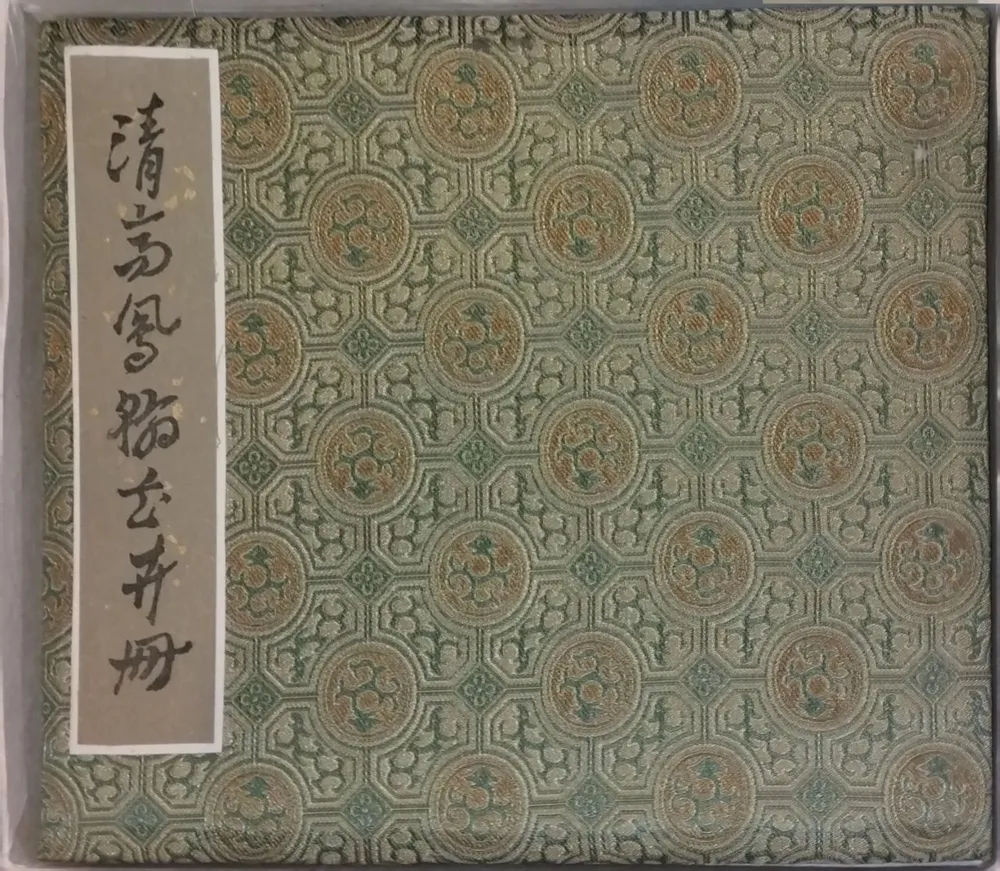 清高鳳翰花卉冊